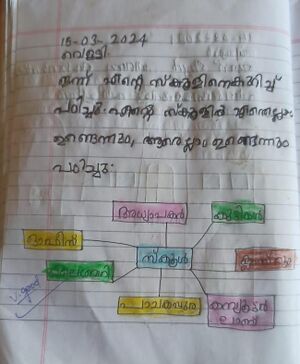 15-03-2024
വെള്ളി
ഇന്ന് എന്റെ സ്കൂളിനെകുറിച്ച്
പഠിച്ചു. എന്റെ സ്കൂളിൽ എന്തെല്ലാം
ഉണ്ടെന്നും, ആരെല്ലാം ഉണ്ടെന്നും
പഠിച്ചു.
അധ്യാപകർ
കുട്ടികൾ
ഓഫീസ്
സ്കൂൾ
പാചകപ്പുര
കമ്പ്യൂട്ടർ
ലാബ്
v. good